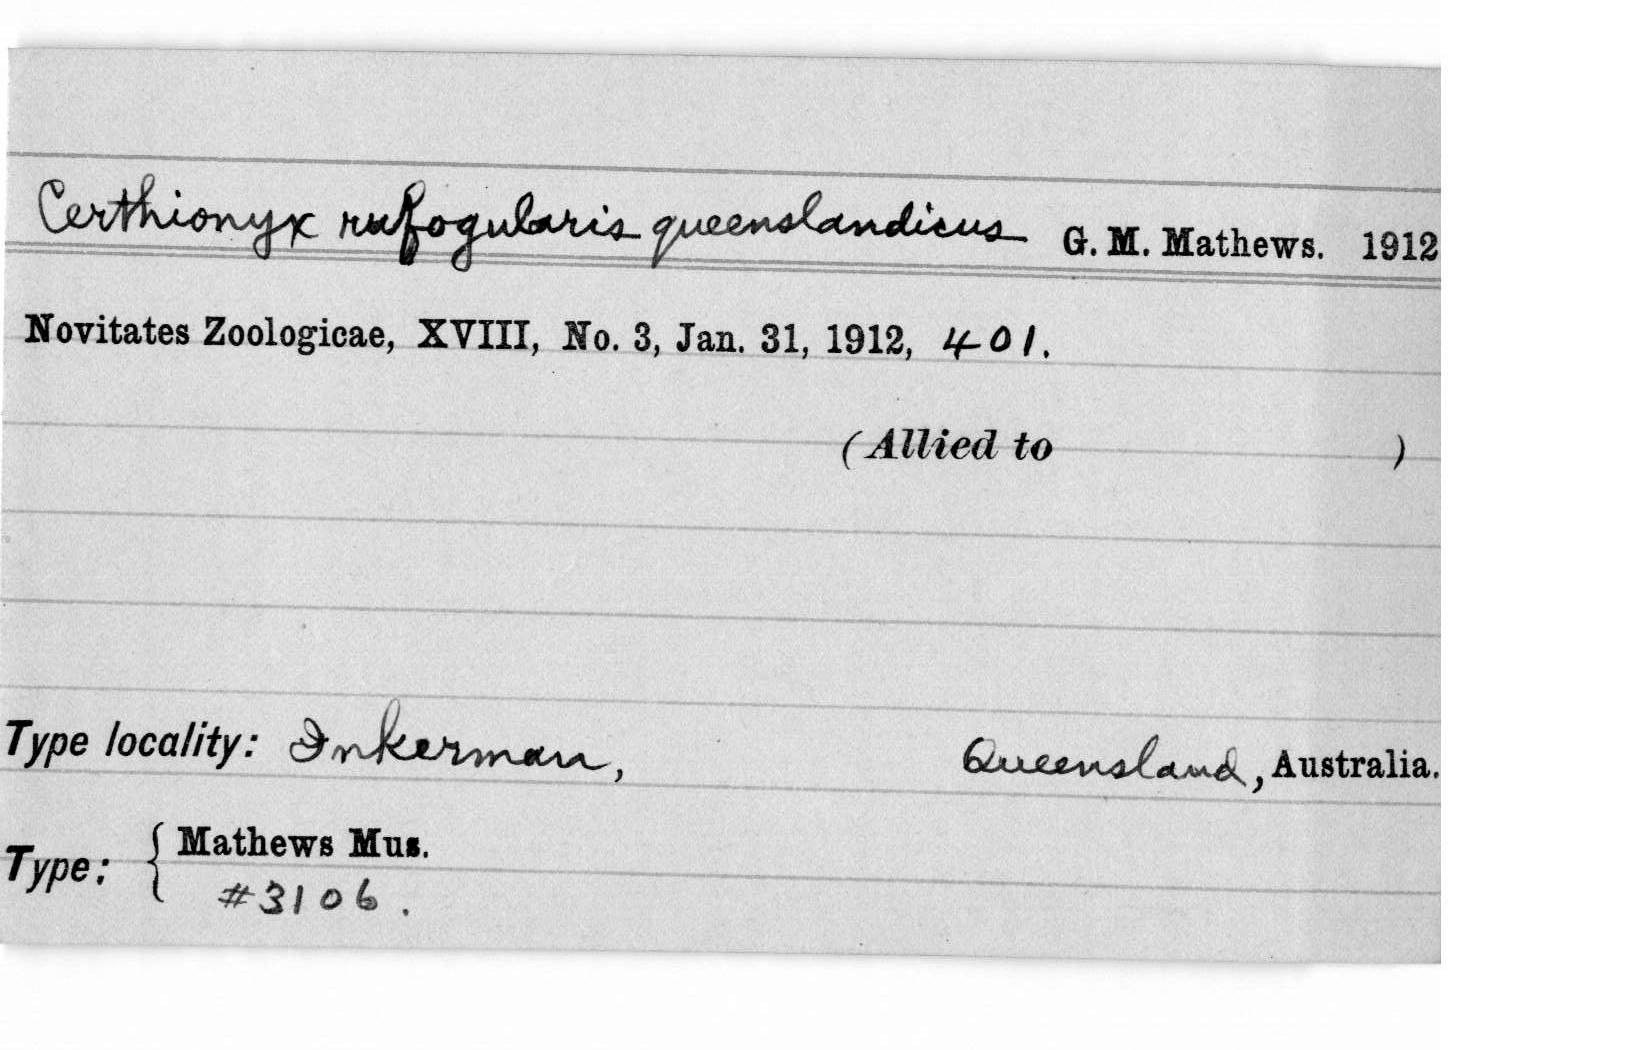 Certhionyx rufogularis queenslandicus G. M. Mathews. 1912
Novitates Zoologicae, XVIII, No. 3, Jan. 31, 1912, 401.
(Allied to )
Type locality: Inkerman, Queensland, Australia.
Type: { Mathews Mus.
#3106.